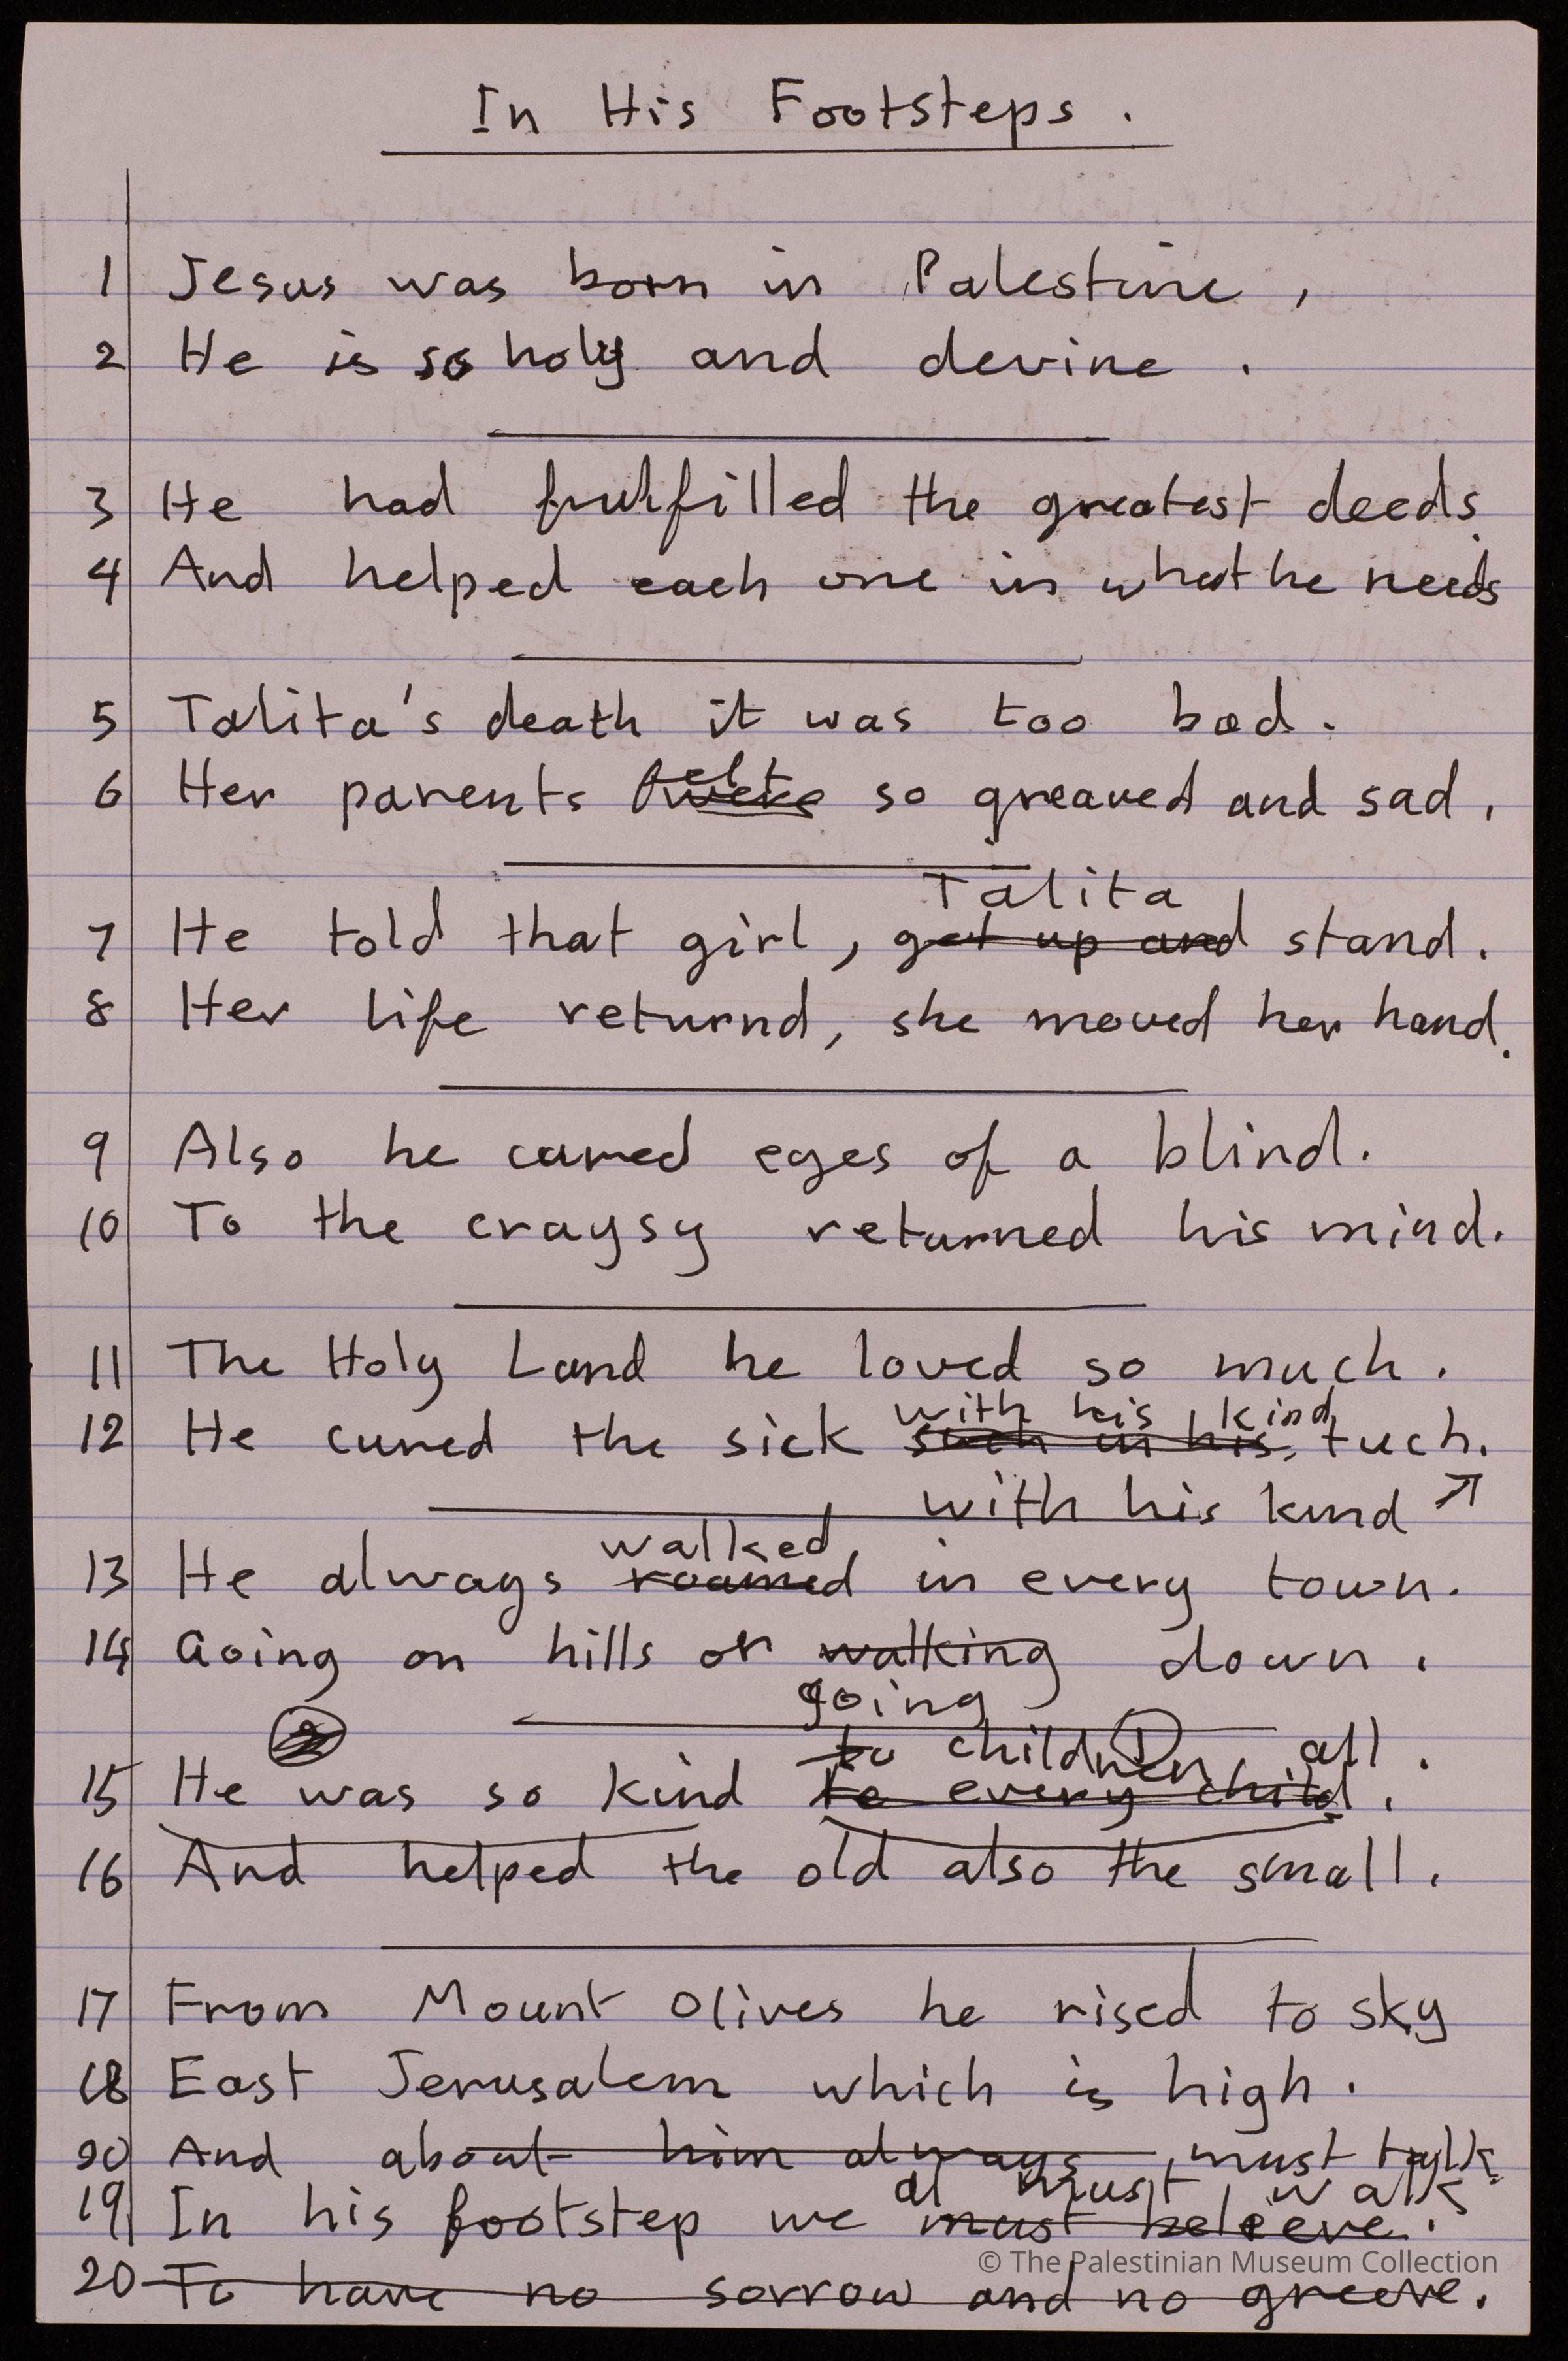 In His Footsteps.
1 Jesus was born in Palestine,
2 He is so holy and devine.
3 He had fulfilled the greatest deeds.
4 And helped each one in what he needs
5 Talita's death it was too bad.
felt
6 Her parents were so greaved and sad,
Talita
7 He told that girl, get up and stand.
8 Her life returnd, she moved her hand.
9 Also he cured eyes of a blind.
10 To the craysy returned his mind.
11 The Holy Land he loved so much.
with his kind
12 He cured the sick such in his tuch.
with his kind
walked
13 He always roamed in every town.
14 Going on hills or walking down.
going
to children all.
15 He was so kind to every child.
16 And helped the old also the small.
17 From Mount Olives he rised to sky
18 East Jerusalem which is high.
20 And about him always must talk
al must walk
19 In his footstep we must beleeve.
© The Palestinian Museum Collection
20 To have no sorrow and no greeve.